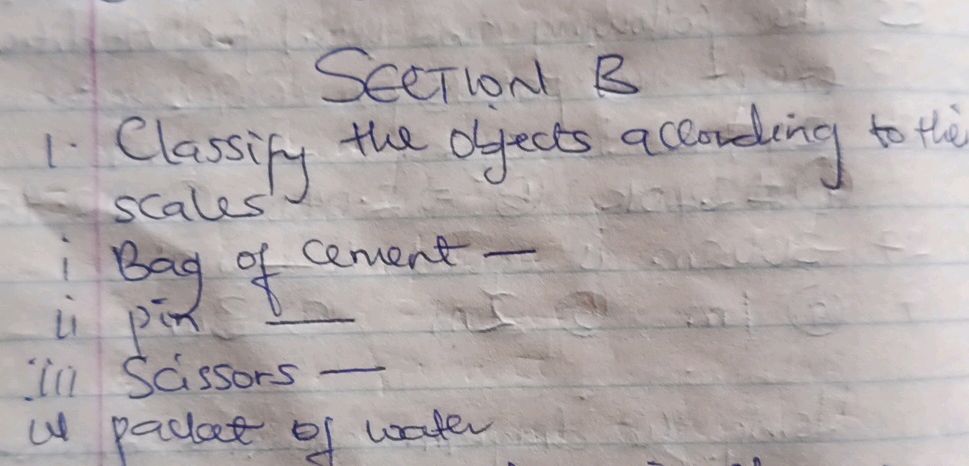 SECTION B
1. Classify the objects according to their
scales
i Bag of cement —
ii pin —
iii Scissors —
iv packet of water